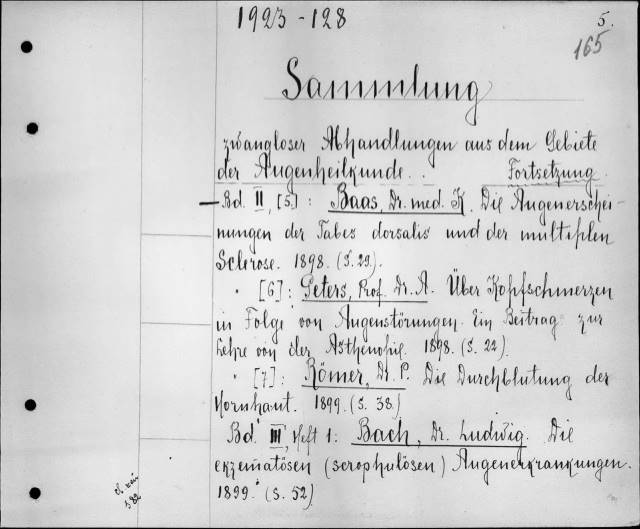 1923 - 128
5.
165
Sammlung
zwangloser Abhandlungen aus dem Gebiete
der Augenheilkunde. . Fortsetzung.
Bd. II, [5]: Baas, Dr. med. K. Die Augenerschei-
nungen der Tabes dorsalis und der multiplen
Sclerose. 1898. (S. 29).
" [6]: Peters, Prof. Dr. A. Über Kopfschmerzen
in Folge von Augenstörungen. Ein Beitrag zur
Lehre von der Asthenopie. 1898. (S. 22).
" [7]: Römer, Dr. P. Die Durchblutung der
Hornhaut. 1899. (S. 38)
Bd. III, Heft 1: Bach, Dr. Ludwig. Die
ekzematösen (scrophulösen) Augenerkrankungen.
1899. (S. 52)